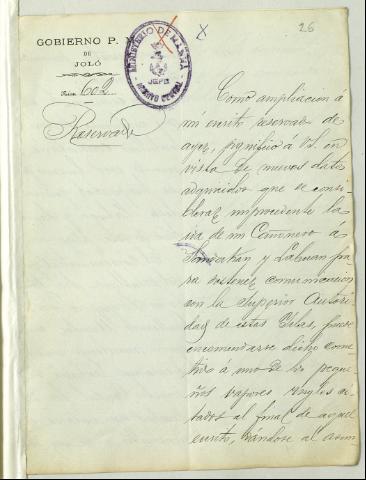 26
GOBIERNO P. M.
DE
JOLÓ
Núm. 602
Reservado
MINISTERIO DE MARINA
ARCHIVO CENTRAL
Como ampliacion á
mi escrito reservado de
ayer, significo á V.E. en
vista de nuevos datos
adquiridos que si consi-
derar improcedente la
ida de un Cañonero á
Sandakan y Labuan pa-
ra sostener comunicacion
con la Superior Autori-
dad de estas Yslas, puede
encomendarse dicho come-
tido á uno de los peque-
ños vapores ingleses ci-
tados al final de aquel
escrito, dándose al asun-